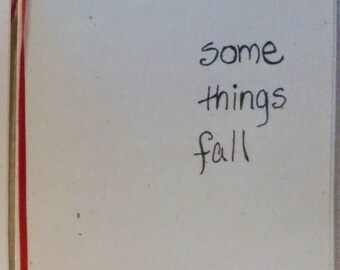 some
things
fall